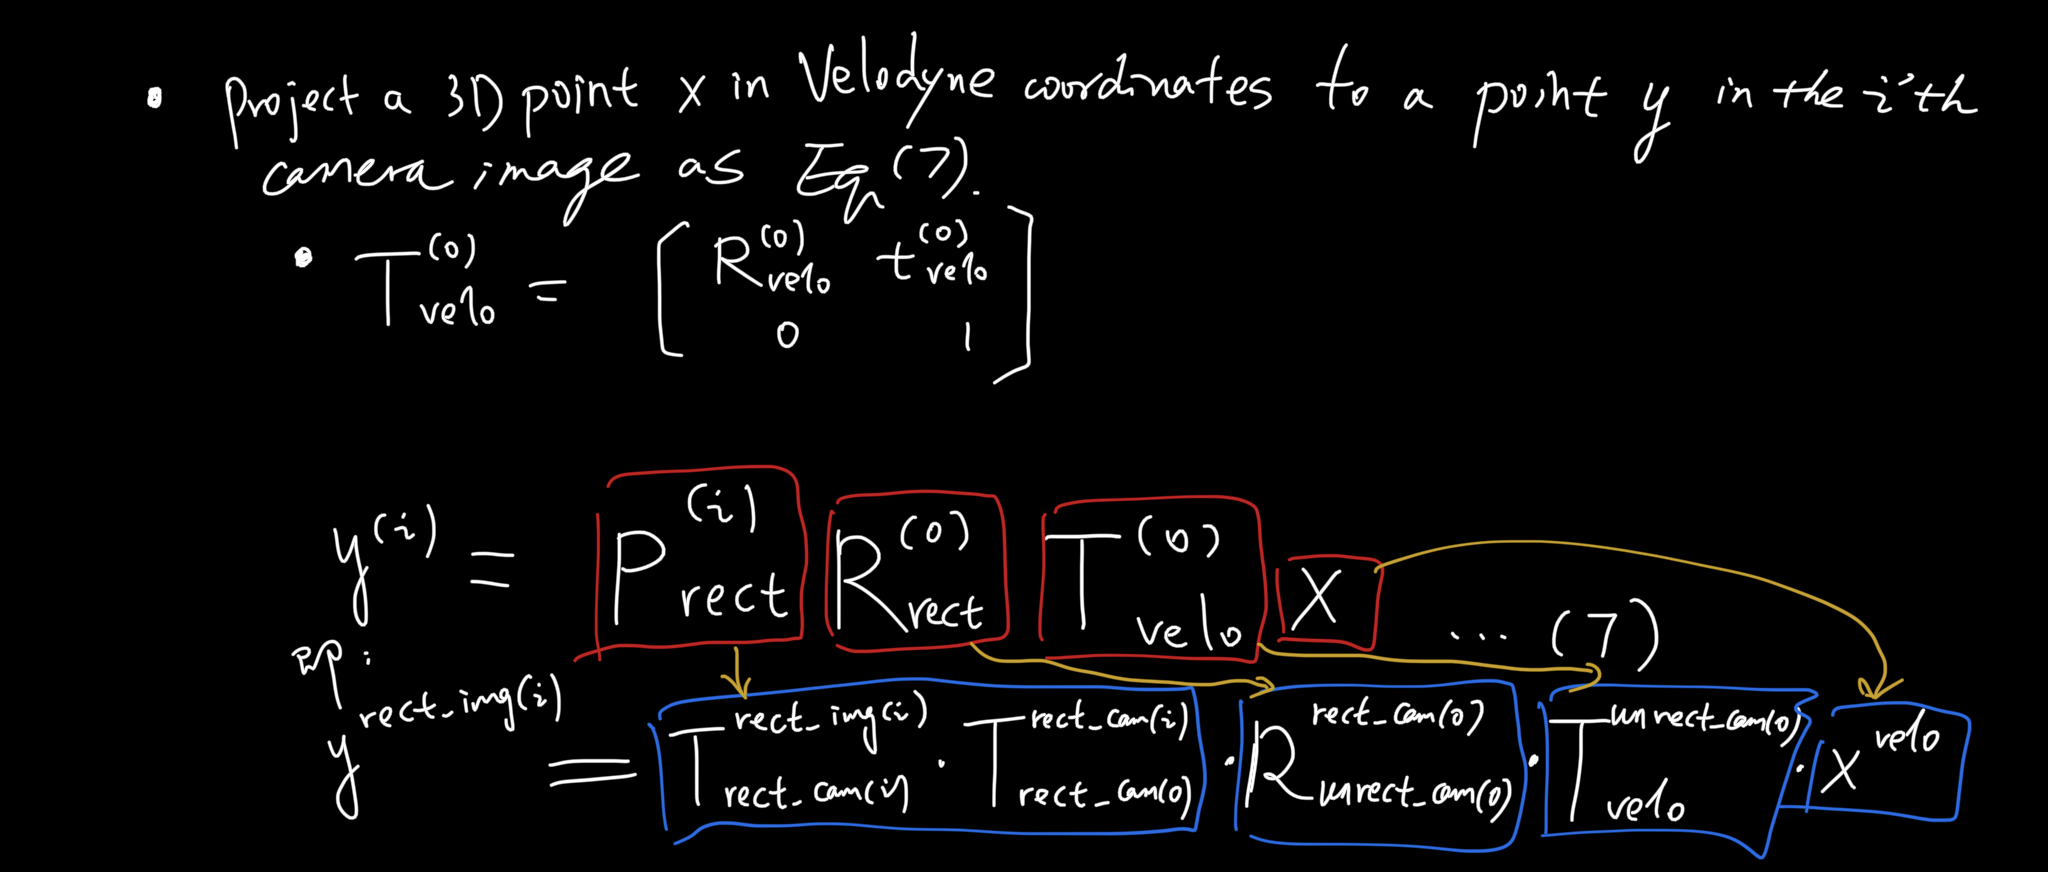 • Project a 3D point x in Velodyne coordinates to a point y in the i'th
camera image as Eq (7).
• T_velo^(0) = [ R_velo^(0) t_velo^(0)
0 1 ]
y^(i) = P_rect^(i) R_rect^(0) T_velo^(0) x ... (7)
即:
y^rect_img(i) = T_rect_cam(i)^rect_img(i) · T_rect_cam(0)^rect_cam(i) · R_unrect_cam(0)^rect_cam(0) · T_velo^unrect_cam(0) · x^velo